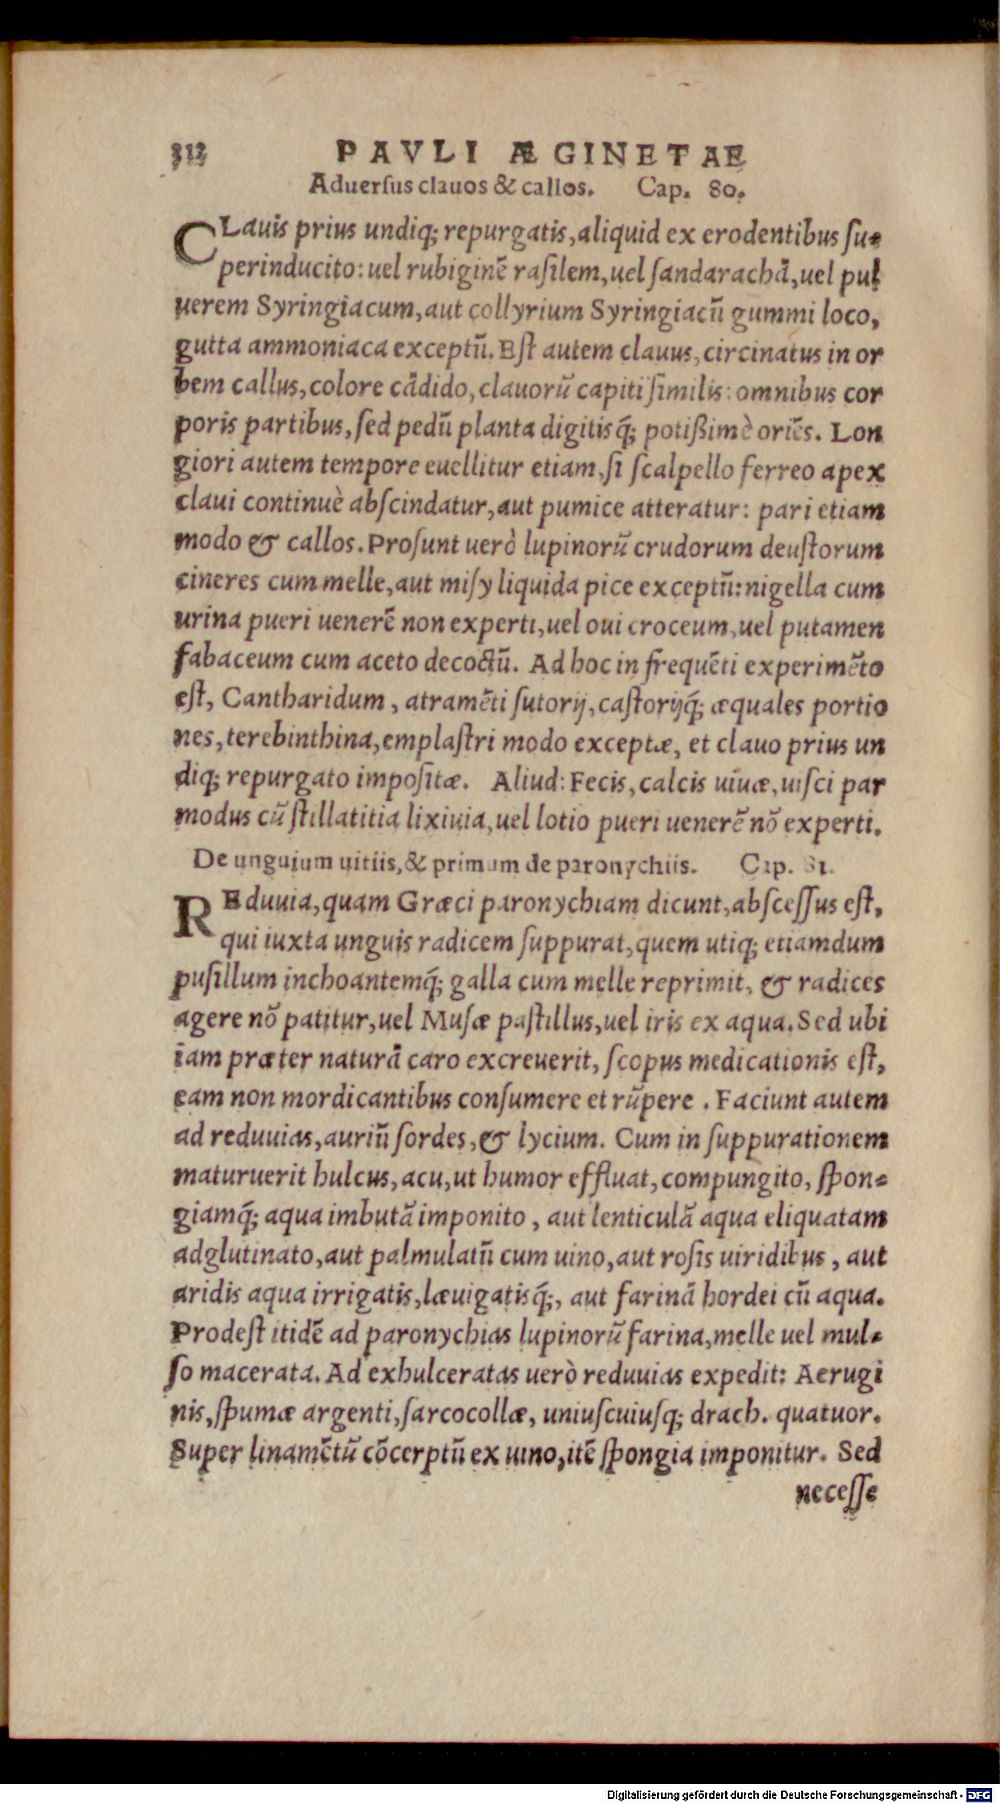 312 PAVLI ÆGINETAE
Aduerſus clauos & callos. Cap. 80.
CLauis prius undiq; repurgatis, aliquid ex erodentibus ſu-
perinducito: uel rubiginẽ raſilem, uel ſandarachã, uel pul
uerem Syringiacum, aut collyrium Syringiacũ gummi loco,
gutta ammoniaca exceptũ. Eſt autem clauus, circinatus in or
bem callus, colore cãdido, clauorũ capiti ſimilis: omnibus cor
poris partibus, ſed pedũ planta digitisq́; potißimè oriẽs. Lon
giori autem tempore euellitur etiam, ſi ſcalpello ferreo apex
claui continuè abſcindatur, aut pumice atteratur: pari etiam
modo & callos. Proſunt uerò lupinorũ crudorum deuſtorum
cineres cum melle, aut miſy liquida pice exceptũ: nigella cum
urina pueri uenerẽ non experti, uel oui croceum, uel putamen
fabaceum cum aceto decoctũ. Ad hoc in frequẽti experimẽto
eſt, Cantharidum, atramẽti ſutorij, caſtorijq́; æquales portio
nes, terebinthina, emplaſtri modo exceptæ, et clauo prius un
diq; repurgato impoſitæ. Aliud: Fecis, calcis uiuæ, uiſci par
modus cũ ſtillatitia lixiuia, uel lotio pueri uenerẽ nõ experti.
De unguium uitiis, & primum de paronychiis. Cap. 81.
REduuia, quam Græci paronychiam dicunt, abſceſſus eſt,
qui iuxta unguis radicem ſuppurat, quem utiq; etiamdum
puſillum inchoantemq́; galla cum melle reprimit, & radices
agere nõ patitur, uel Muſæ paſtillus, uel iris ex aqua. Sed ubi
iam præter naturã caro excreuerit, ſcopus medicationis eſt,
eam non mordicantibus conſumere et rũpere. Faciunt autem
ad reduuias, auriũ ſordes, & lycium. Cum in ſuppurationem
maturuerit hulcus, acu, ut humor effluat, compungito, ſpon-
giamq́; aqua imbutã imponito, aut lenticulã aqua eliquatam
adglutinato, aut palmulatũ cum uino, aut roſis uiridibus, aut
aridis aqua irrigatis, læuigatisq́;, aut farinã hordei cũ aqua.
Prodeſt itidẽ ad paronychias lupinorũ farina, melle uel mul-
ſo macerata. Ad exhulceratas uerò reduuias expedit: Aerugi
nis, ſpumæ argenti, ſarcocollæ, uniuſcuiuſq; drach. quatuor.
Super linamẽtũ cõcerptũ ex uino, itẽ ſpongia imponitur. Sed
neceſſe
Digitalisierung gefördert durch die Deutsche Forschungsgemeinschaft - DFG